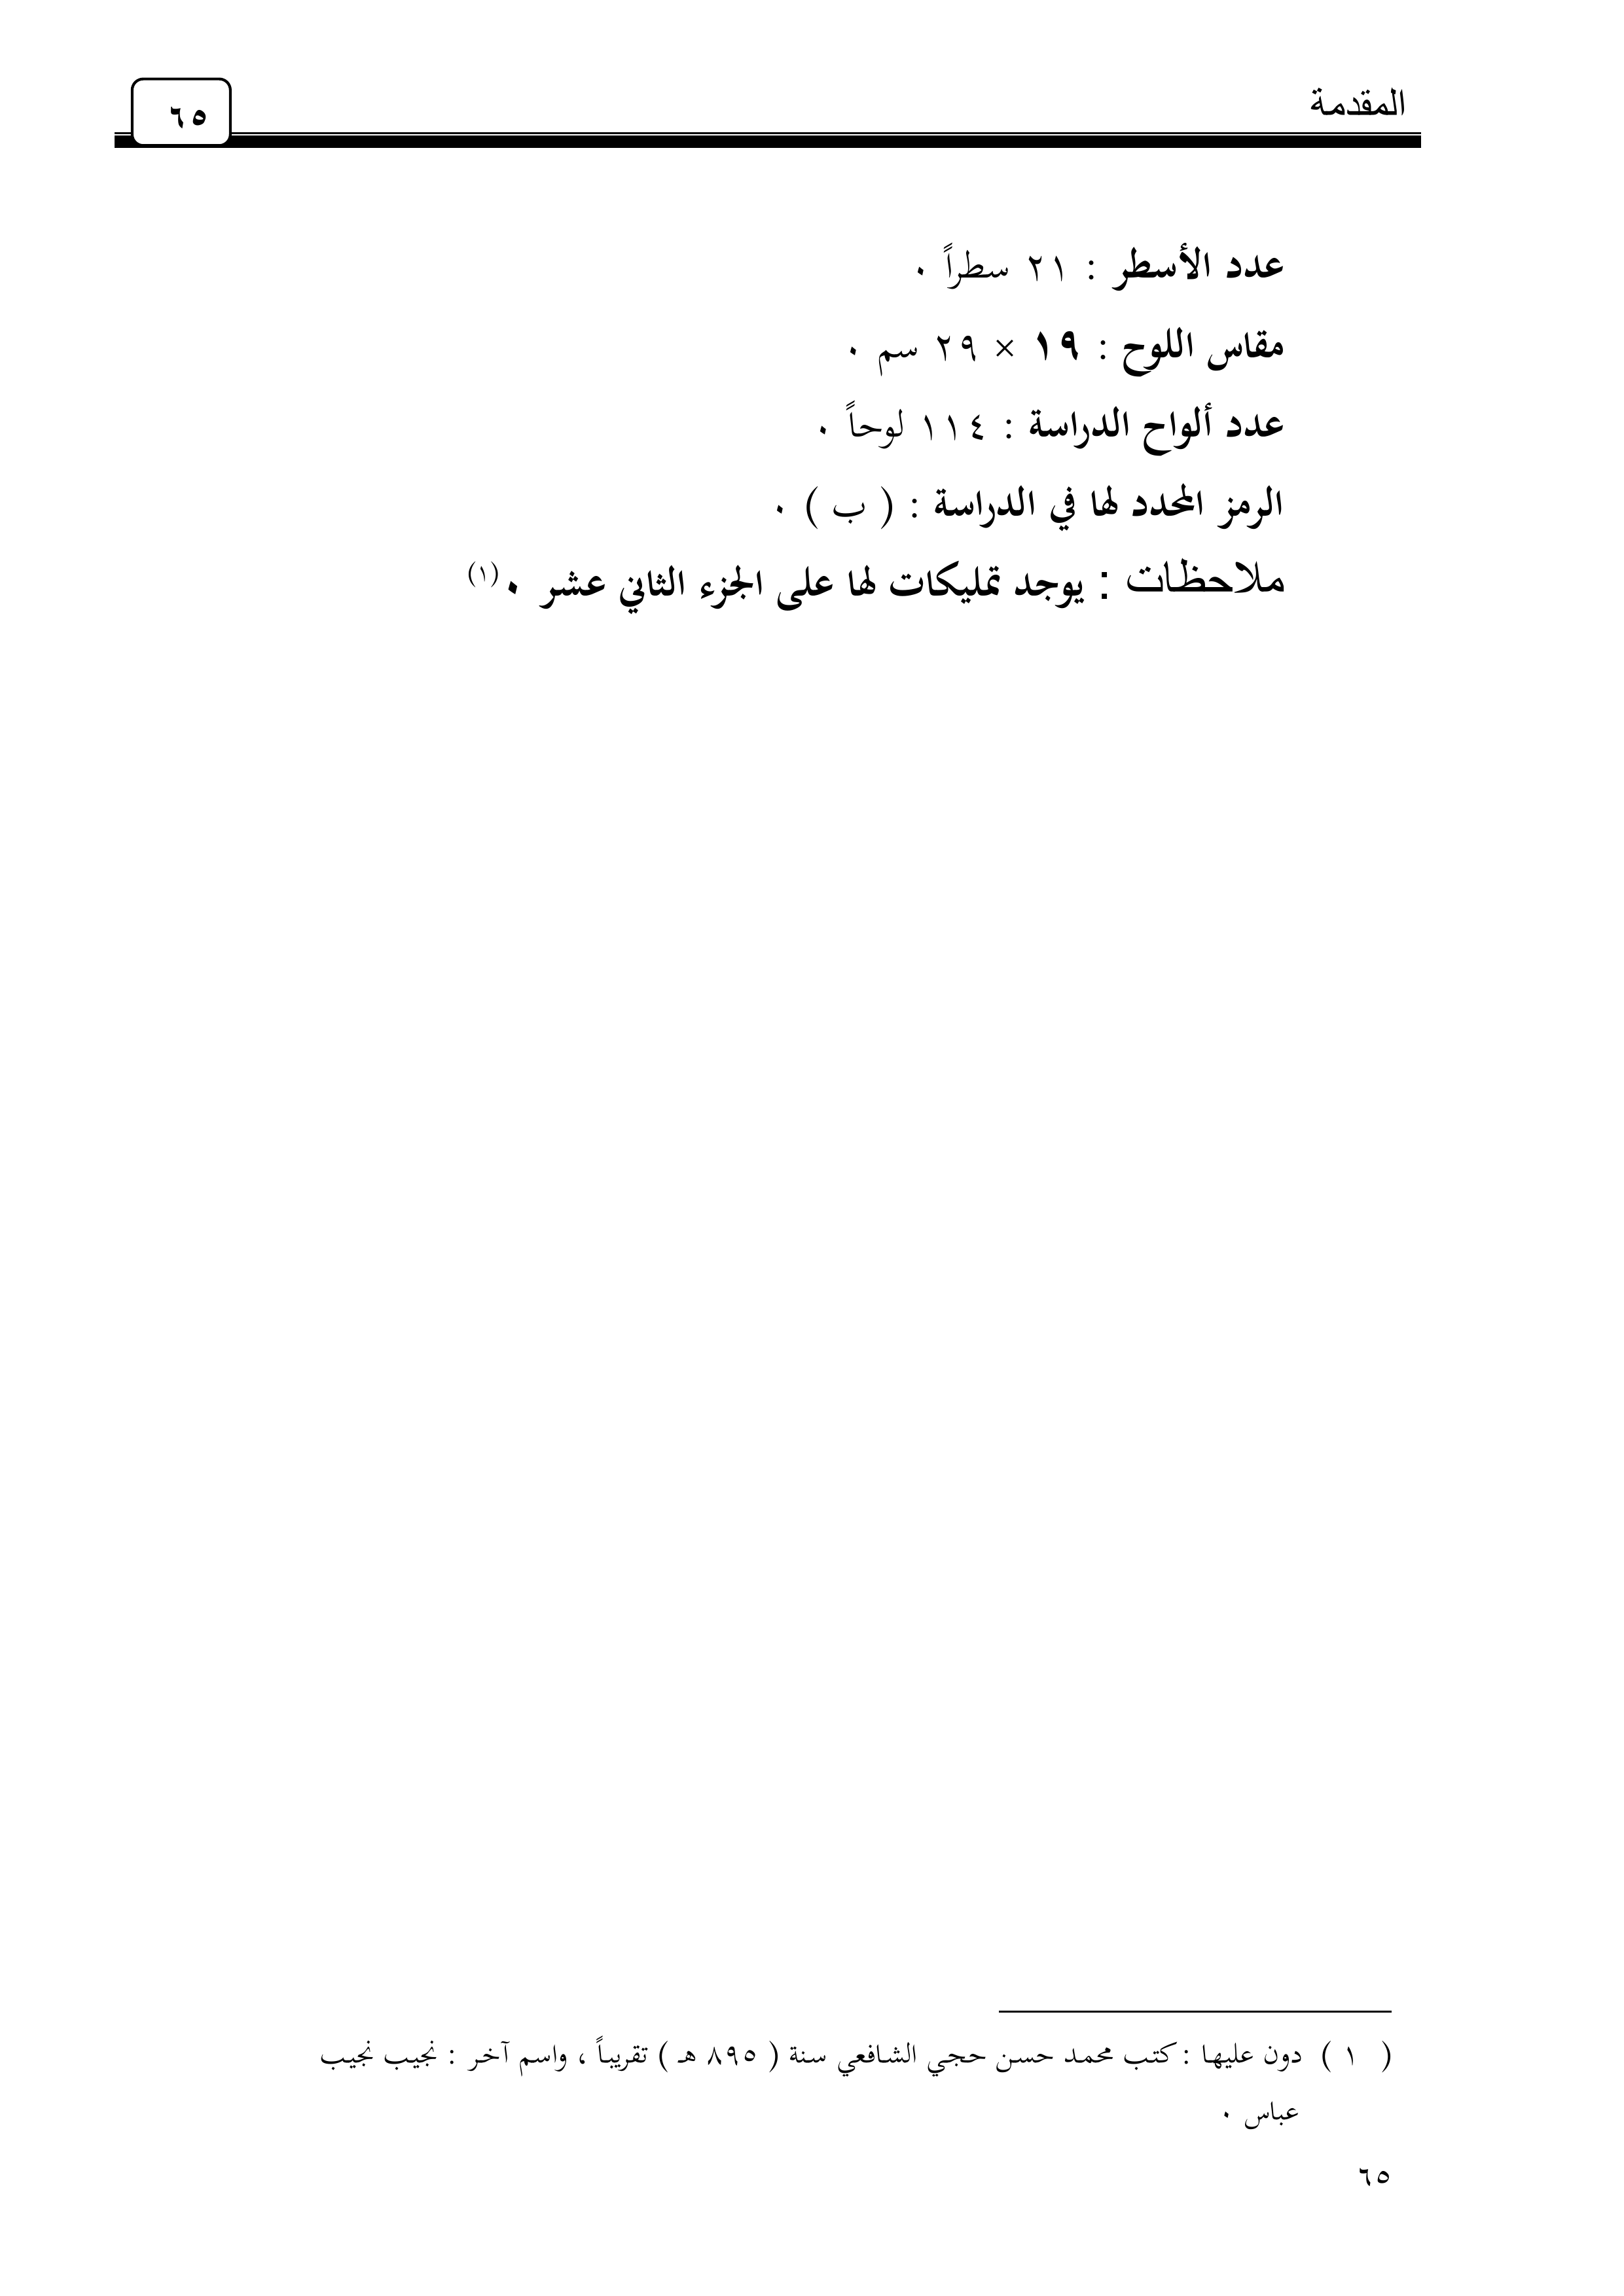 المقدمة
٦٥
عدد الأسطر : ٢١ سطراً ٠
مقاس اللوح : ١٩ × ٢٩ سم ٠
عدد ألواح الدراسة : ١١٤ لوحاً ٠
الرمز المحدد لها في الدراسة : ( ب ) ٠
ملاحظات : يوجد تمليكات لها على الجزء الثاني عشر ٠(١)
( ١ ) دون عليها : كتب محمد حسن حجي الشافعي سنة ( ٨٩٥ هـ ) تقريباً ، واسم آخر : نجيب نجيب
عباس ٠
٦٥